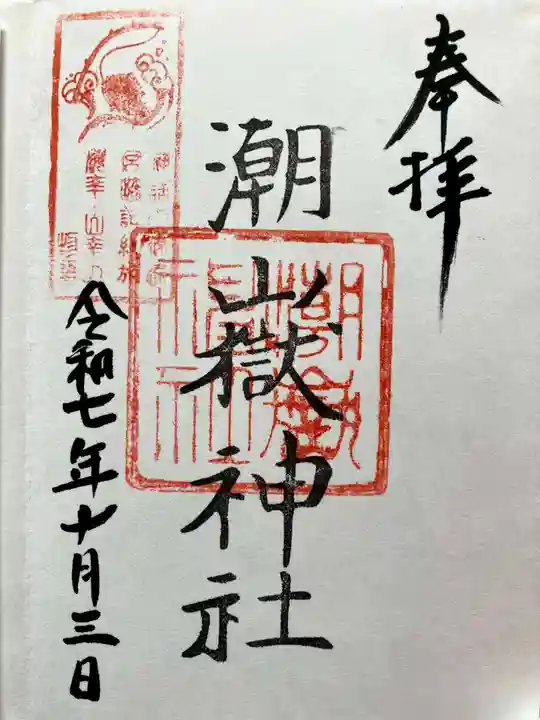 奉拝
潮嶽神社
潮嶽神社
令和七年十月三日